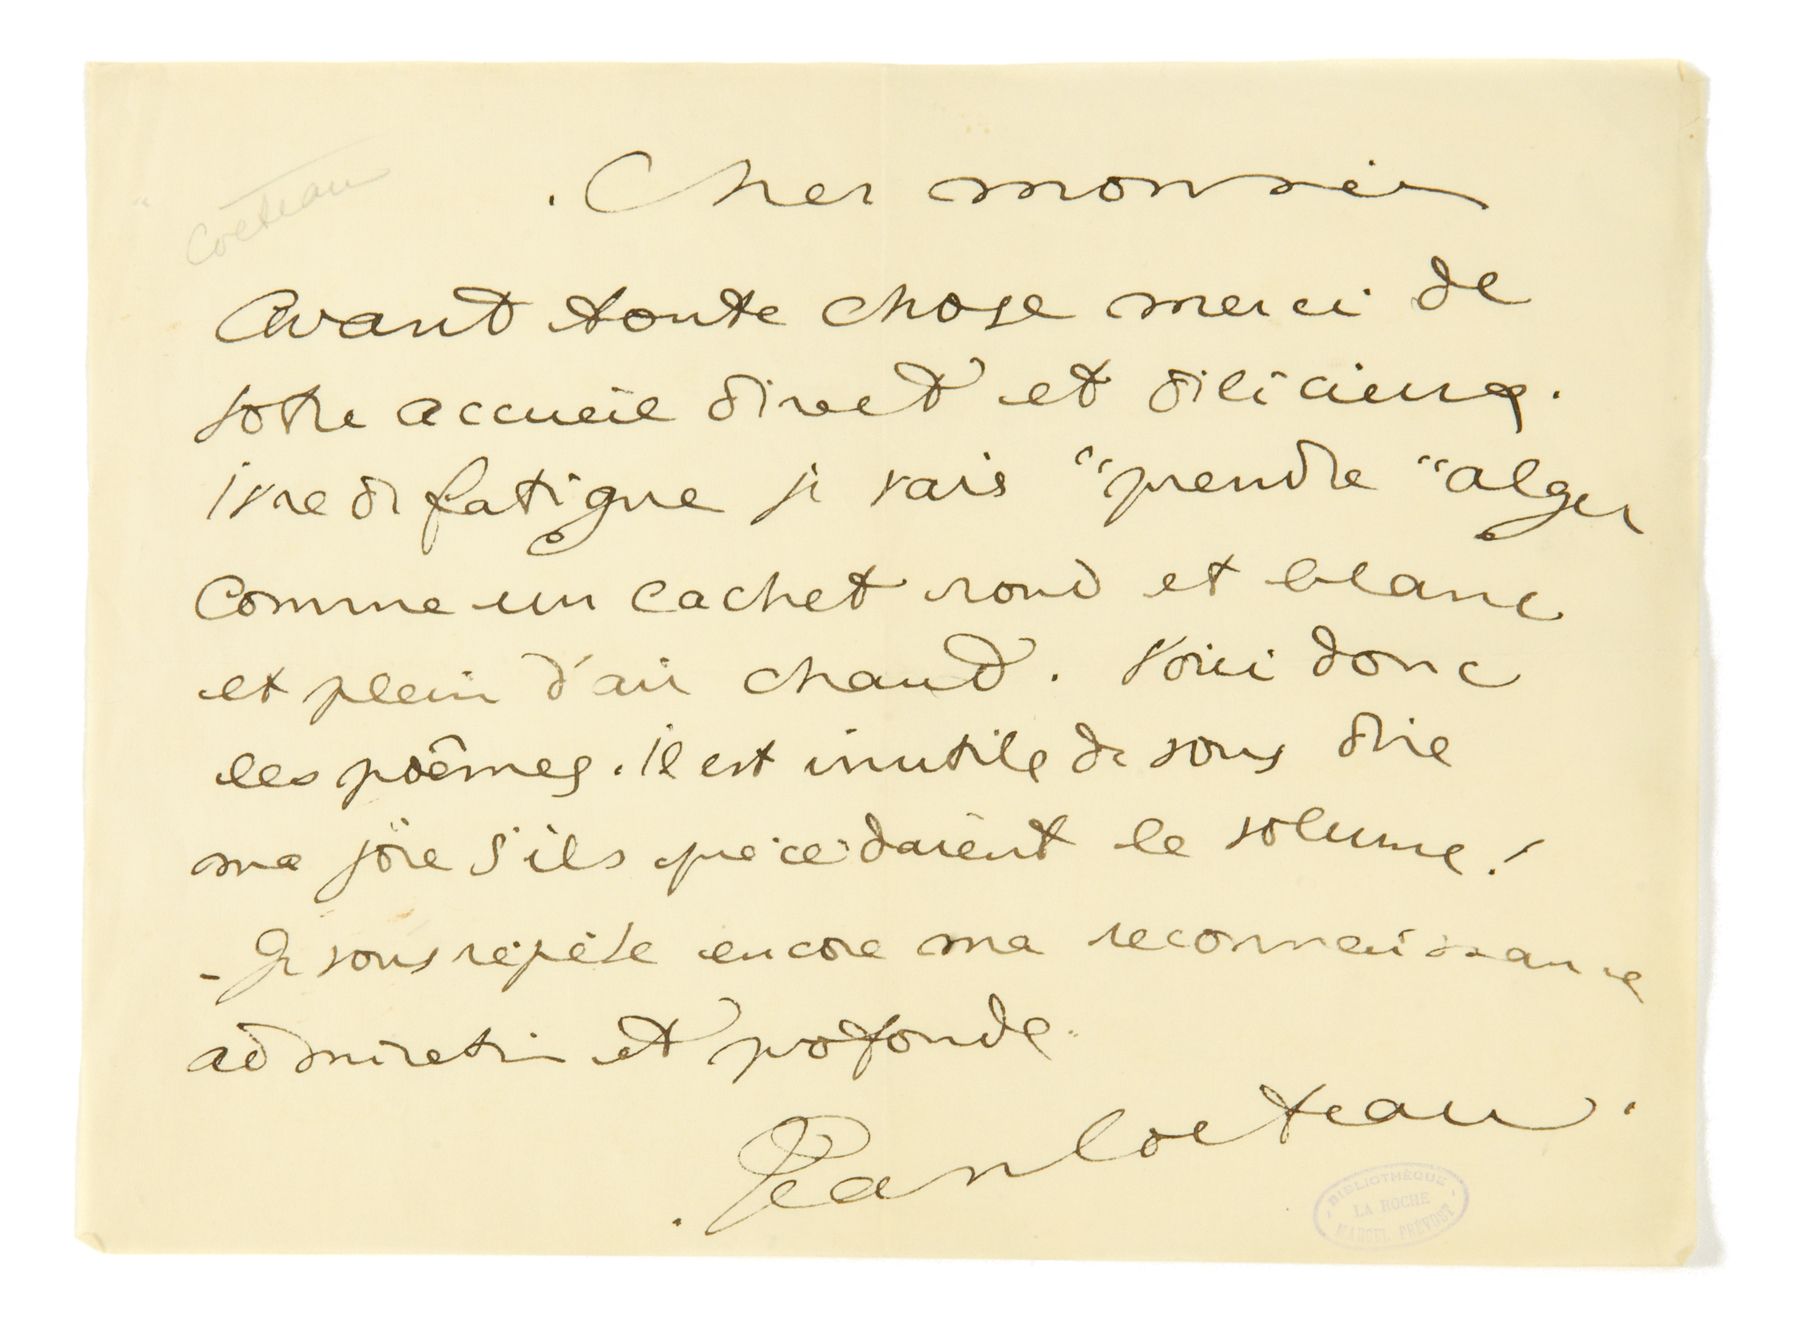 Cocteau
Cher monsieur
Avant toute chose merci de
votre accueil direct et délicieux.
ivre de fatigue je vais "prendre" alger
comme un cachet rond et blanc
et plein d'air chaud. Voici donc
les poêmes. il est inutile de vous dire
ma joïe s'ils précédaient le volume!
- Je vous répète encore ma reconnaissance
admirative et profonde.
Jean Cocteau
BIBLIOTHÈQUE
LA ROCHE
MARCEL PRÉVOST